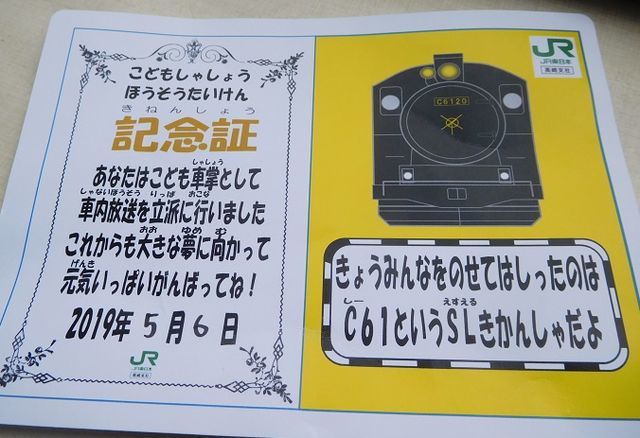 こどもしゃしょう
ほうそうたいけん
きねんしょう
記念証
しゃしょう
あなたはこども車掌として
しゃないほうそう りっぱ おこな
車内放送を立派に行いました
おお ゆめ む
これからも大きな夢に向かって
げんき
元気いっぱいがんばってね!
2019年 5月6日
JR
JR東日本
高崎支社
JR
JR東日本
高崎支社
C6120
きょうみんなをのせてはしったのは
しー えすえる
C61というSLきかんしゃだよ